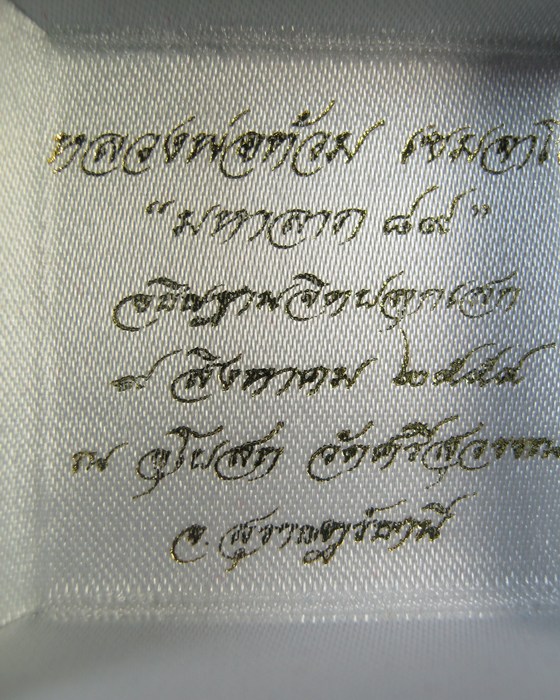 หลวงพ่อท้วม เขมจาโ
“มหาลาภ ๘๙”
อธิษฐานจิตปลุกเสก
๙ สิงหาคม ๒๕๕๔
ณ อุโบสถ วัดศรีสุวรรณ
จ. สุราษฎร์ธานี